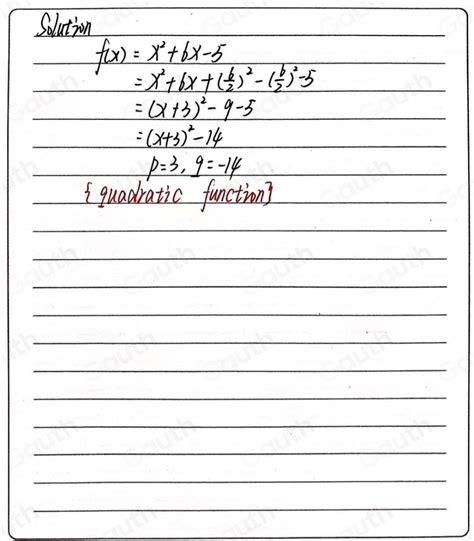 Solution
f(x) = x² + 6x - 5
= x² + 6x + (6/2)² - (6/2)² - 5
= (x+3)² - 9 - 5
= (x+3)² - 14
p=3, q=-14
{quadratic function}